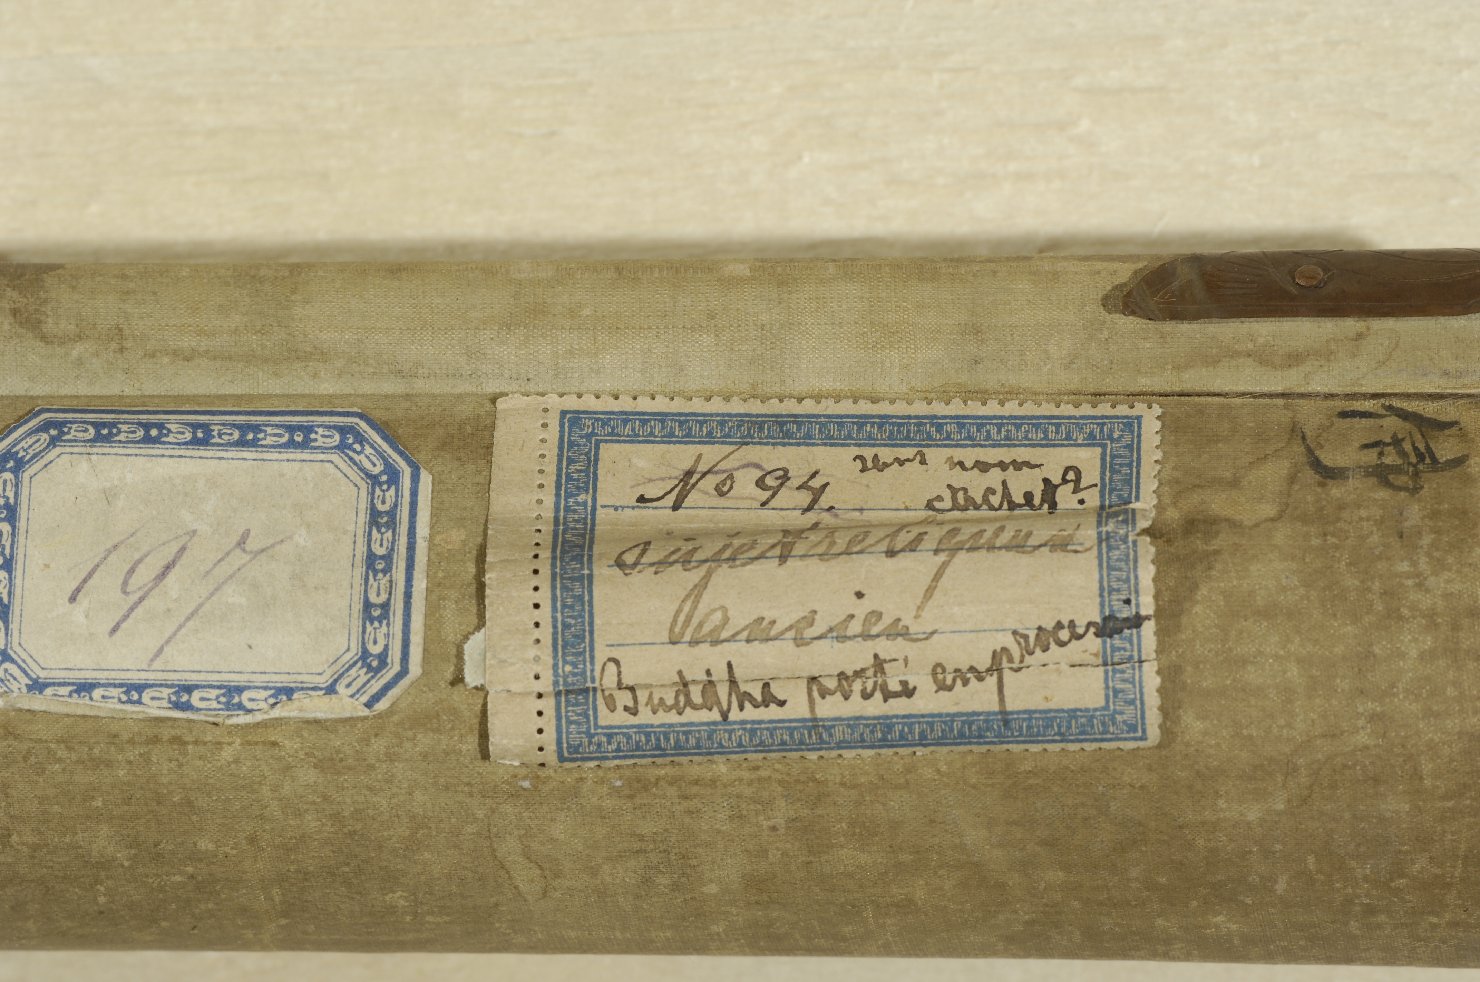 197
No 94. sans nom
cachet?
sujet religieux
ancien
Buddha porté en procession